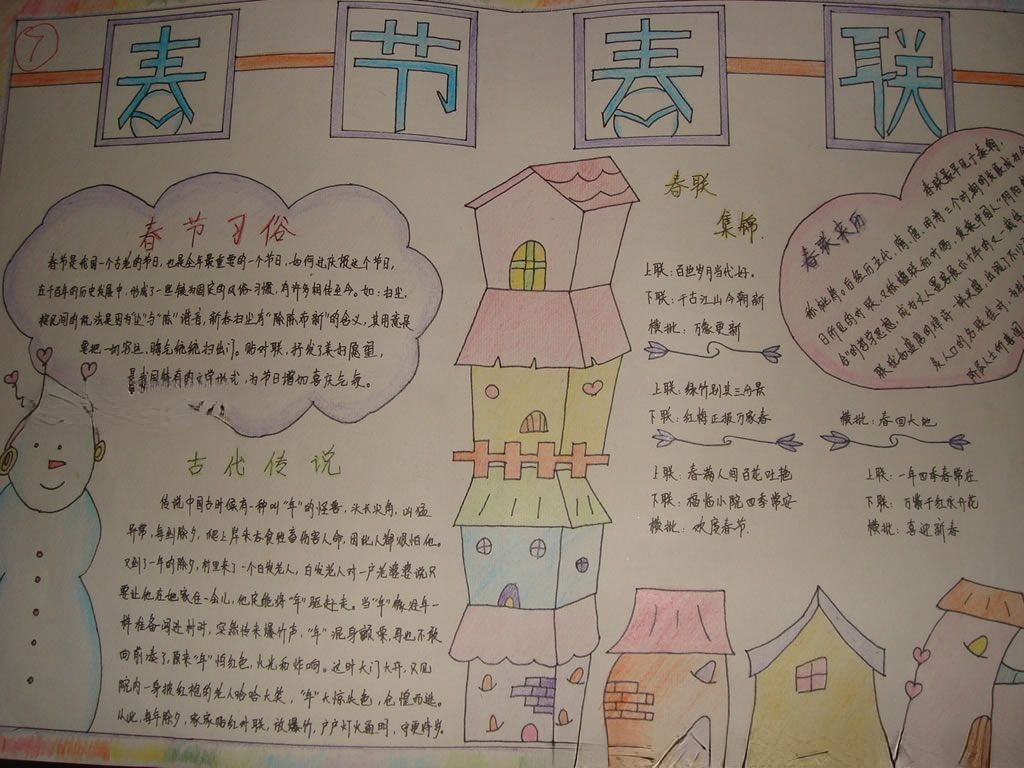 7
春节春联
春节习俗
春节是我国一个古老的节日,也是全年最重要的一个节日,如何过庆祝这个节日,
在千百年的历史发展中,形成了一些较为固定的风俗习惯,有许多相传至今。如:扫尘,
按民间的说法是因为“尘”与“陈”谐音,新春扫尘有“除陈布新”的含义,其用意是
要把一切穷运、晦气统统扫出门。贴对联,抒发了美好愿望,
是我国特有的文学形式,为节日增加喜庆气氛。
古代传说
传说中国古时候有一种叫“年”的怪兽,头长尖角,凶猛
异常,每到除夕,爬上岸来吞食牲畜伤害人命,因此人都恨怕他。
又到了一年的除夕,村里来了一个白发老人,白发老人对一户老婆婆说只
要让他在她家住一会儿,他定能将“年”驱赶走。当“年”像往年一
样准备闯进村时,突然传来爆竹声,“年”混身颤栗,再也不敢
向前凑了,原来“年”怕红色,火光和炸响。这时大门大开,只见
院内一身披红袍的老人哈哈大笑,“年”大惊失色,仓惶而逃。
从此,每年除夕,家家贴红对联,放爆竹,户户灯火通明,守更待岁。
春联
集锦
上联:百世岁月当代好。
下联:千古江山今朝新
横批:万象更新
上联:绿竹别其三分景
下联:红梅正报万家春
横批:春回大地
上联:春满人间百花吐艳
下联:福临小院四季常安
横批:欢度春节
上联:一年四季春常在
下联:万紫千红永开花
横批:喜迎新春
春联来历
春联最早见于秦朝,
的桃符。后经历五代、隋、